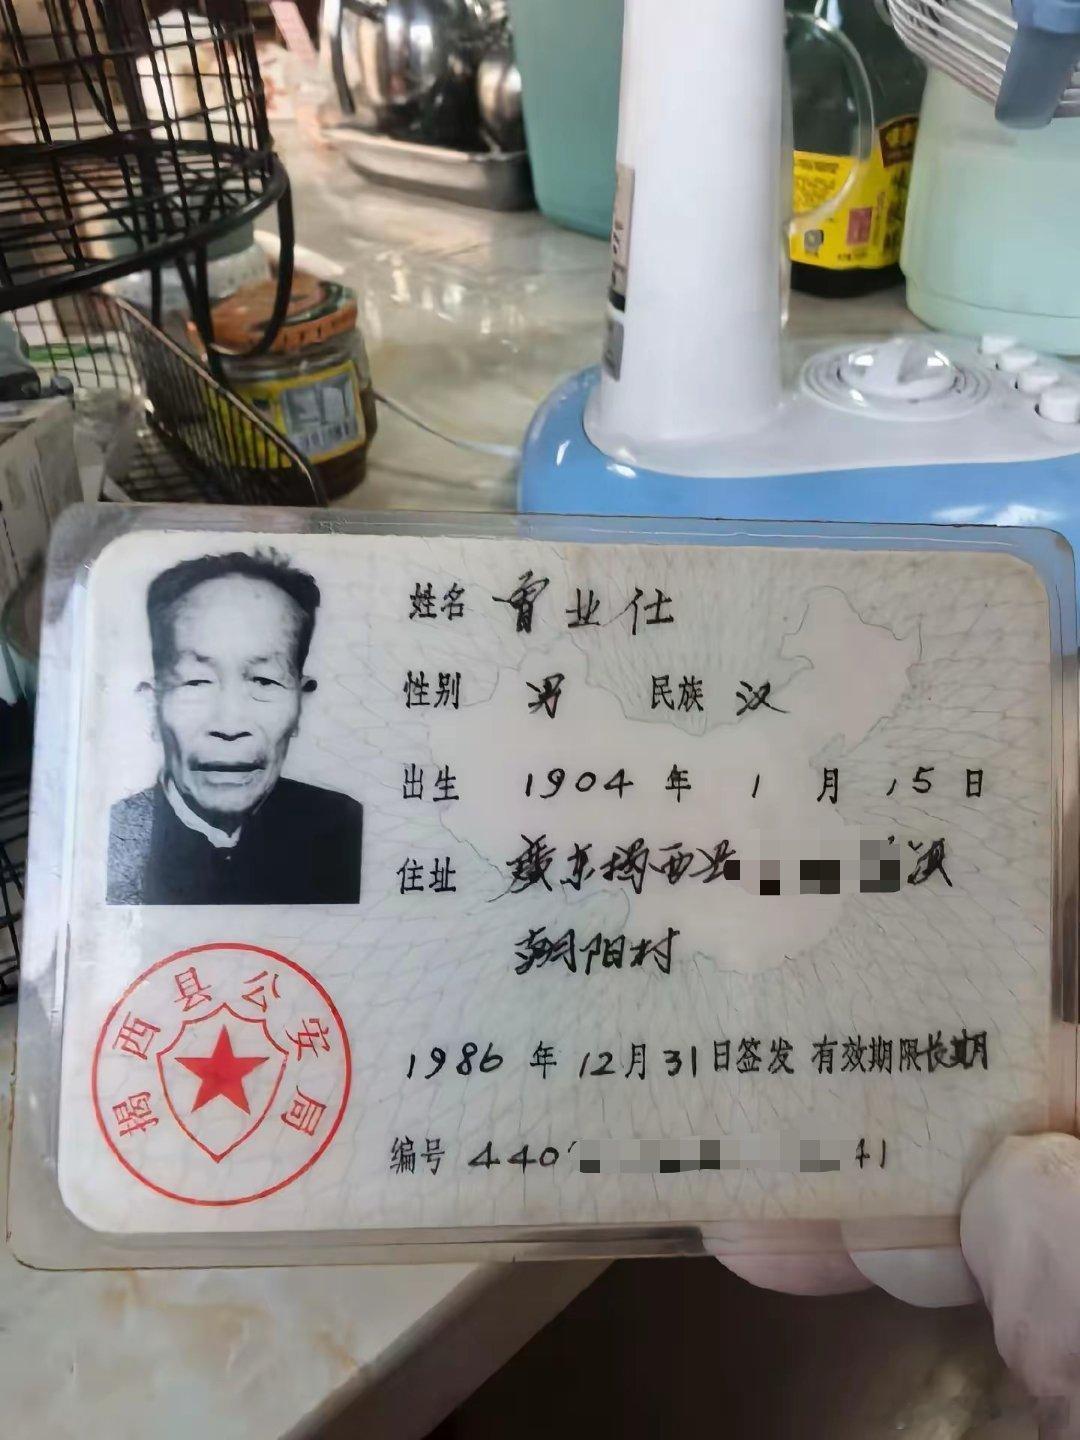 姓名 曾业仕
性别 男 民族 汉
出生 1904 年 1 月 15 日
住址 广东揭西县
朝阳村
1986 年 12 月 31 日签发 有效期限长期
编号 440 41
揭西县公安局